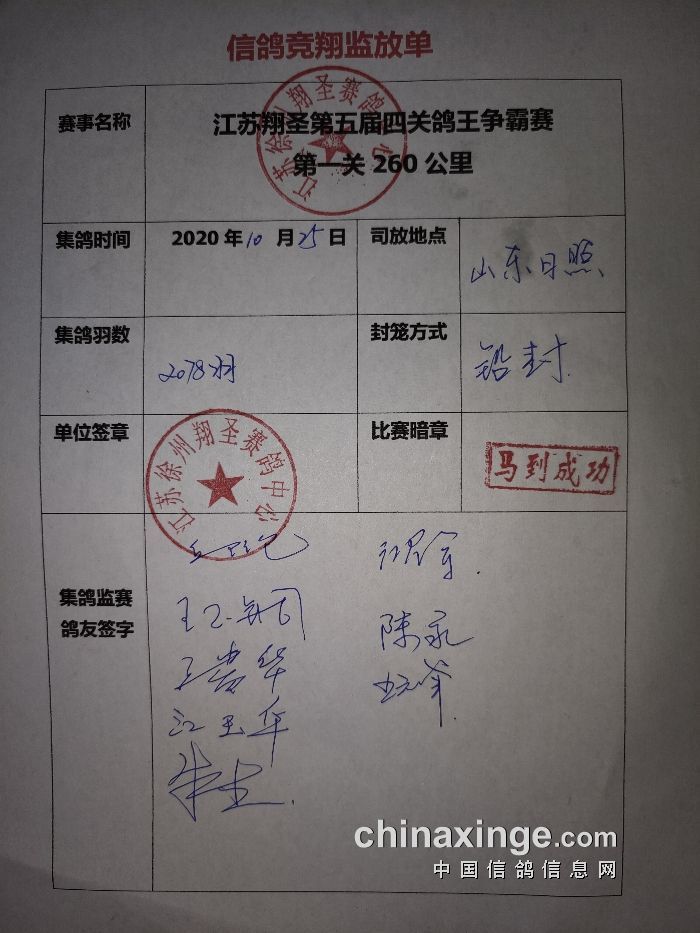 信鸽竞翔监放单
赛事名称
江苏翔圣第五届四关鸽王争霸赛
第一关 260 公里
江苏徐州翔圣赛鸽中心
集鸽时间
2020 年 10 月 25 日
司放地点
山东日照
集鸽羽数
2078羽
封笼方式
铅封
单位签章
江苏徐州翔圣赛鸽中心
比赛暗章
马到成功
集鸽监赛
鸽友签字
王贵华
江玉华
陈永
chinaxinge.com
中国信鸽信息网